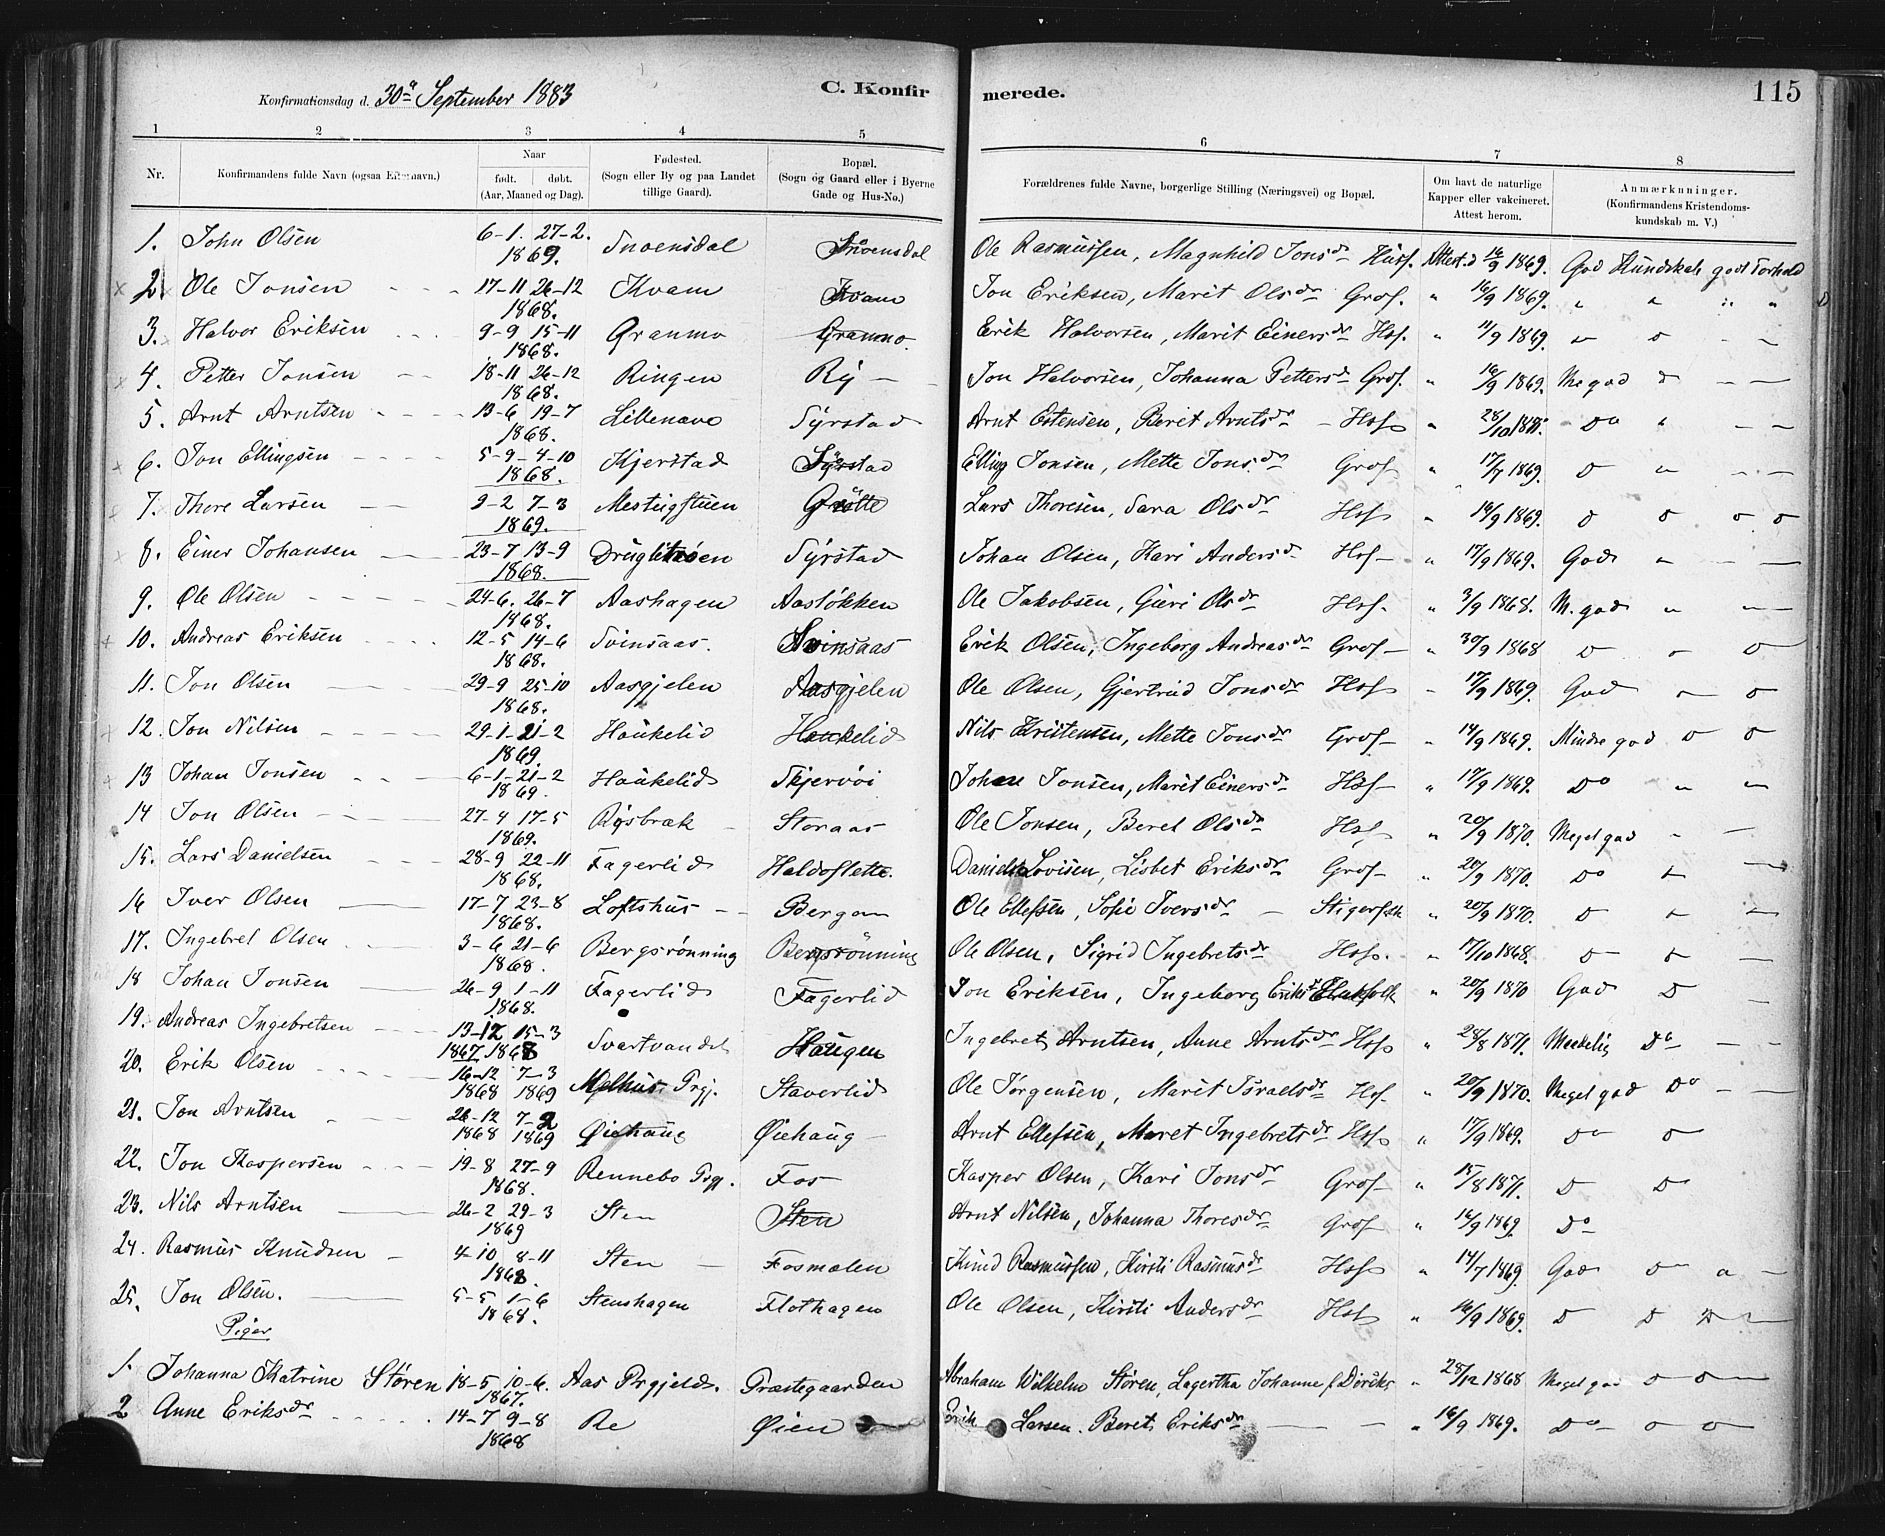 Konfirmationsdag d. 30te September 1883 C. Konfirmerede. 115
1 2 3 4 5 6 7 8
Nr. Konfirmandens fulde Navn (ogsaa Efternavn.) Naar født. døbt. (Aar, Maaned og Dag). Fødested. (Sogn eller By og paa Landet tillige Gaard). Bopæl. (Sogn og Gaard eller i Byerne Gade og Hus-No.) Forældrenes fulde Navne, borgerlige Stilling (Næringsvei) og Bopæl. Om havt de naturlige Kapper eller vakcineret. Attest herom. Anmærkninger. (Konfirmandens Kristendomskundskab m. V.)
1. John Olsen 6-1. 27-2. 1869. Snoensdal Snoensdal Ole Rasmussen, Magnhild Jonsdr Husf. Attest d 16/9 1869. God Kundskab godt Forhold
2 Ole Jonsen 17-11 26-12 1868. Kvam Kvam Jon Eriksen, Marit Olsdr Grof. " 16/9 1869. " " " "
3. Halvor Eriksen 9-9 15-11 1868. Granmo Granmo. Erik Halvorsen, Marit Einersdr Hsf. " 11/9 1869.
4. Petter Jonsen 18-11 26-12 1868. Ringen Ry Jon Halvorsen, Johanna Pettersdr Grof. " 16/9 1869. M god
5. Arnt Arntsen 13-6 19-7 1868. Lillenave Syrstad Arnt Estensen, Beret Arntsdr Hsf " 28/10 Do "
6. Jon Ellingsen 5-9-4-10 1868. Kjerstad Syrstad Elling Jonsen, Mette Jonsdr Grof " 17/7 1869. D
7. Thore Larsen 2-2 7-3 1869. Mestugstuen Grøtte Lars Thoresen, Sara Olsdr Hsf " 14/9 1869. D
8. Einer Johansen 23-7 13-9 1868. Druglitrøen Syrstad Johan Olsen, Kari Andersdr Hsf " 17/9 1869. God
9. Ole Olsen 24-6. 26-7 1868. Aashagen Aasløkken Ole Jakobsen, Guri Olsdr Hsf. " 3/9 1868. M. god
10. Andreas Eriksen 12-5 14-6 1868. Svinsaas. Svinsaas Erik Olsen, Ingeborg Andreasdr Grof " 30/9 1868 D
11. Jon Olsen 29-9 25-10 1868. Aasgjelen Aasgjelen Ole Olsen, Gjertrud Jonsdr Hsf 17/9 1869. God
12. Jon Nilsen 29-1-21-2 1869. Haukelid Haukelid Nils Kristensen, Mette Jonsdr Grof " 14/9 1869. Mindre god
13 Johan Jonsen 6-1-21-2 1869. Haukelid Skjervøi Johan Jonsen, Marit Einersdr Hsf " 17/9 1869. Do " "
14 Jon Olsen 27-4 17-5 1869. Rysbræk Storaas Ole Jonsen, Beret Olsdr Hsf " 20/9 1870. Meget god
15. Lars Danielsen 28-9 22-11 1868. Fagerlid Haldoslette. Daniel Lovisen, Lisbet Eriksdr Grof " 20/9 1870. Do
16 Iver Olsen 17-7 23-8 1868. Loftshus Bergom Ole Ellefsen, Sofie Iversdr " 20/9 1870. D
17. Ingebret Olsen 3-6 21-6 1868. Bergsrønning Bergsrønning Ole Olsen, Sigrid Ingebretsdr Hsf. " 17/10 1868. D
18 Johan Jonsen 26-9 1-11 1868. Fagerlid Fagerlid Jon Eriksen, Ingeborg Eriksdr " 20/9 1870 God D
19. Andreas Ingebretsen 13-12 15-3 1867 1868 Svartvandet Haugen Ingebret Arntsen, Anne Arntsdr Hsf " 28/8 1871. Maadelig Do
20. Erik Olsen 16-12 7-3 1868 1869 Melhus Prgj. Staverlid Ole Jørgensen, Marit Israelsdr Hsf. " 20/9 1870. Meget god Do
21. Jon Arntsen 26-12 7-2 1868 1869 Øiehaug Øiehaug Arnt Ellefsen, Maret Ingebretsdr Hsf " 17/9 1869. Do
22. Jon Kaspersen 19-8 27-9 1868. Rennebo Prgj. Fos Kasper Olsen, Kari Jonsdr Grof " 15/8 1871. D Do
23. Nils Arntsen 26-2 29-3 1869 Sten Sten Arnt Nilsen, Johanna Thoresdr Grof " 16/9 1869. Do
24. Rasmus Knudsen 4-10 8-11 1868. Sten Fosmoen Knud Rasmussen, Kirsti Rasmusdr Hsf " 14/7 1869. God
25. Jon Olsen. 5-5 1-6 1868. Stenshagen Flothagen Ole Olsen, Kirsti Andersdr Hsf " 16/9 1869. D D D
Piger
1. Johanna Katrine Støren 18-5 10-6. 1867. Aas Prgjeld. Præstegaarden Abraham Wilhelm Støren, Lagertha Johanne f. " 28/12 1868 Meget god
2 Anne Eriksdr 14-7 9-8 1868 Re Øien Erik Larsen. Beret Eriksdr " 16/9 1869. Do